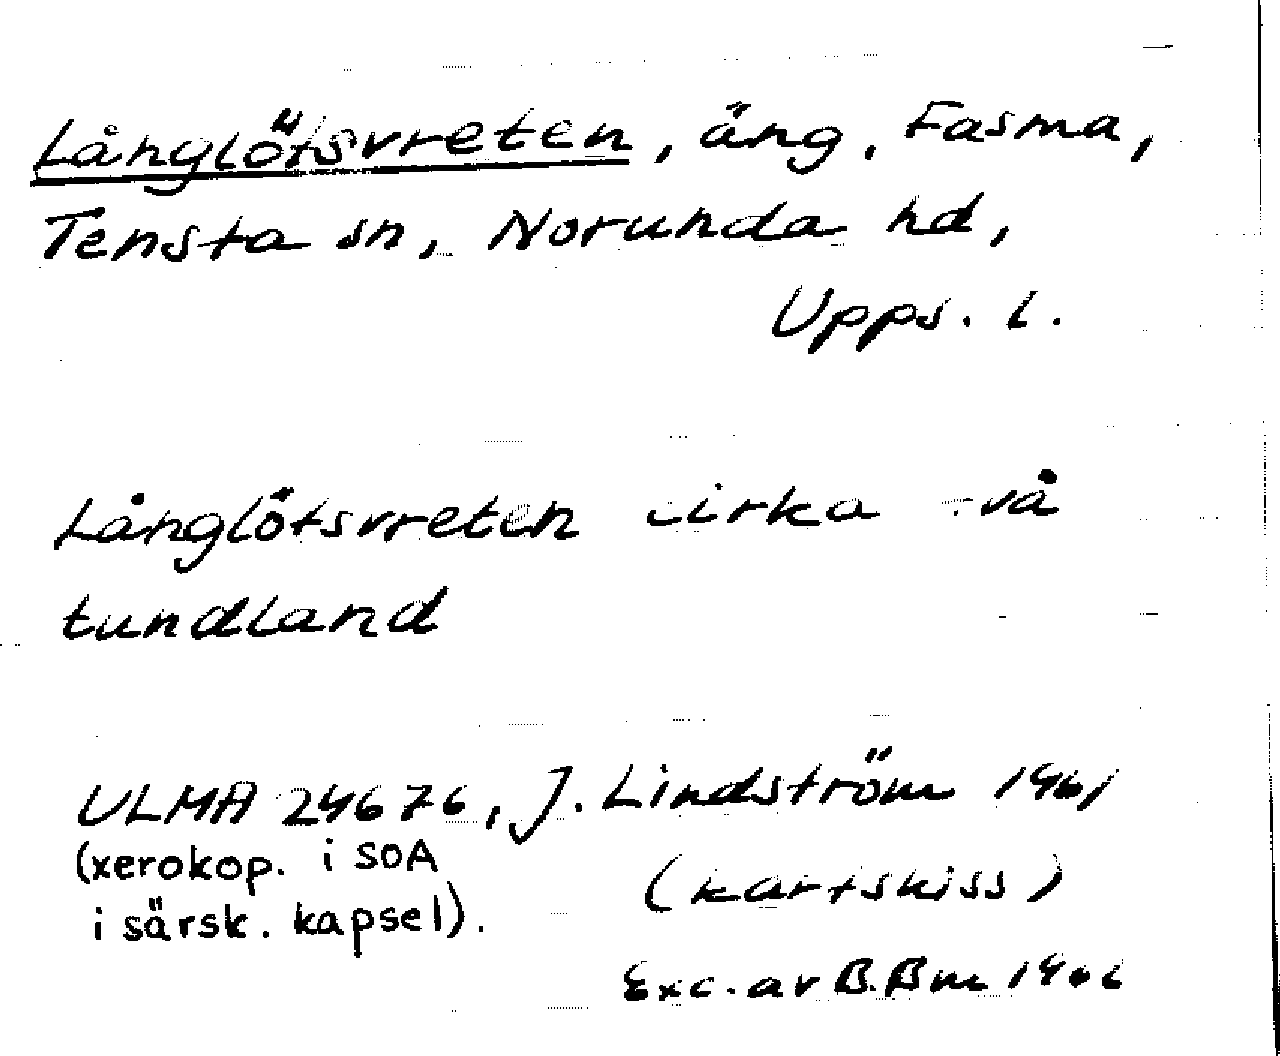 Långlötsvreten, äng, Fasma,
Tensta sn, Norunda hd,
Upps. l.
Långlötsvreten cirka två
tundland
ULMA 24676, J. Lindström 1961
(xerokop. i SOA
i särsk. kapsel).
(kartskiss)
Exc. av B. Bm